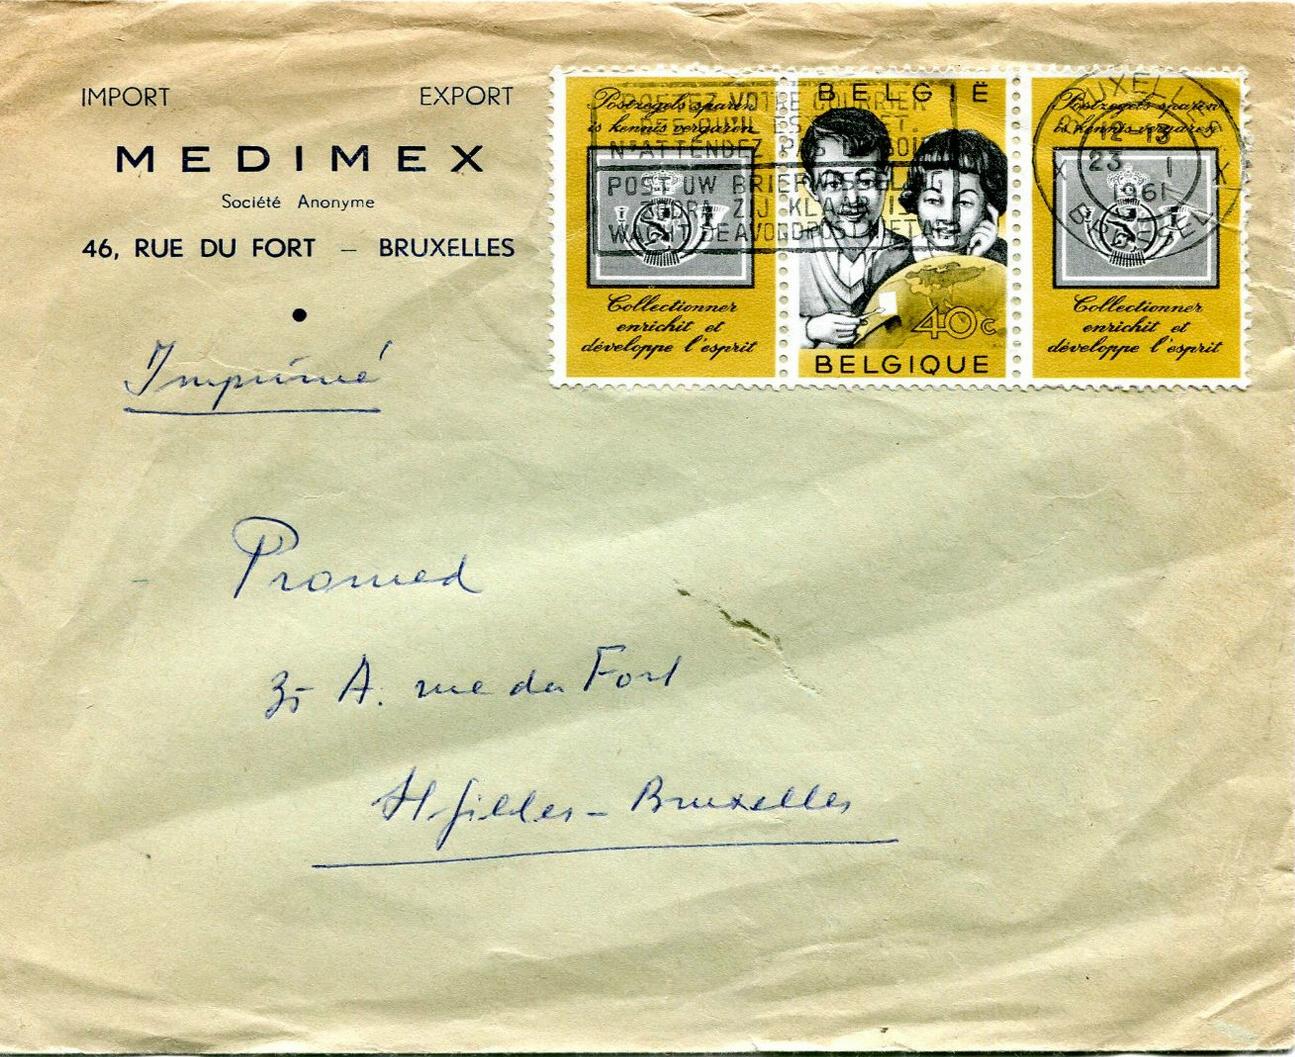 IMPORT EXPORT
MEDIMEX
Société Anonyme
46, RUE DU FORT – BRUXELLES
Imprimé
Postzegels sparen
is kennis vergaren
Collectionner
enrichit et
développe l'esprit
BELGIË
40c
BELGIQUE
Postzegels sparen
is kennis vergaren
Collectionner
enrichit et
développe l'esprit
POSTEZ VOTRE COURRIER
DES QU'IL EST
N'ATTENDEZ PAS
POST UW BRIEFWISSELING
ZODRA ZIJ KLAAR IS
WACHT DE AVONDPOST NIET AF
BRUXELLES X
12-13
23 I
1961
BRUSSEL X
Promed
35 A. rue du Fort
St Gilles – Bruxelles